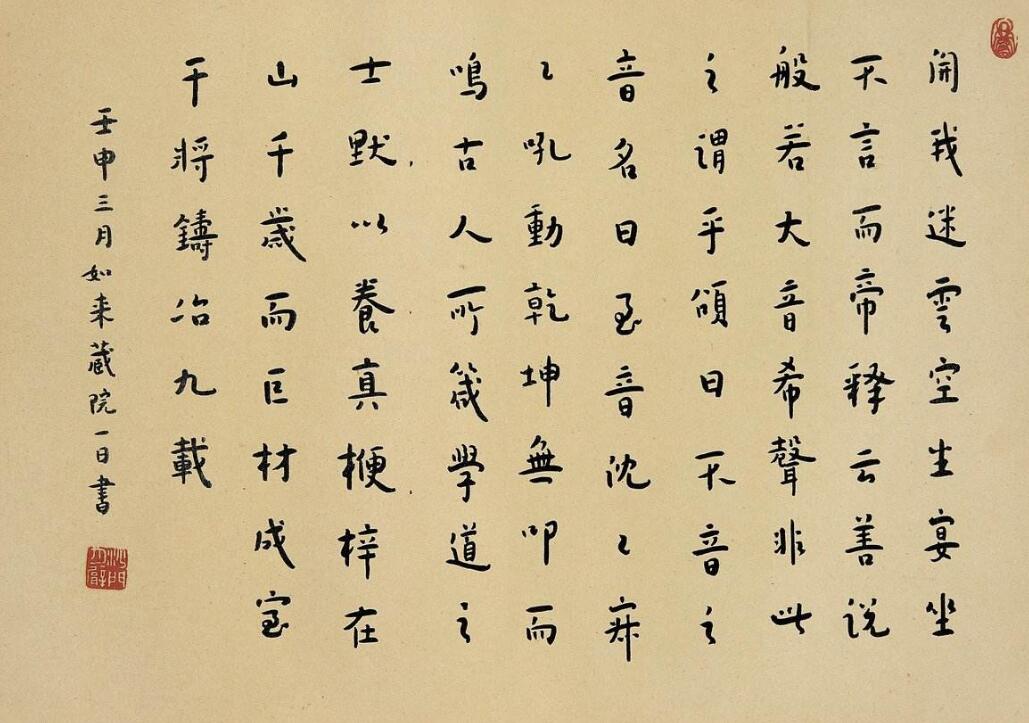 開我迷雲空生宴坐
不言而帝释云善説
般若大音希聲非此
之謂乎頌曰不音之
音名曰至音沈〻寂
〻吼動乾坤無叩而
鳴古人所箴學道之
士默以養真楩梓在
山千歲而巨材成室
干將鑄冶九載
壬申三月如来蔵院一日書